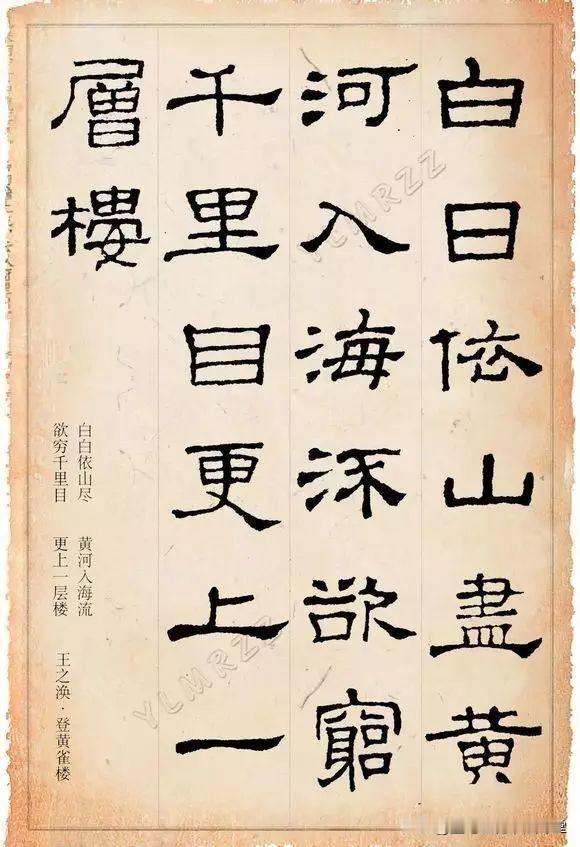 白日依山盡黄
河入海流欲窮
千里目更上一
層樓
白白依山尽 黄河入海流
欲穷千里目 更上一层楼
王之涣·登黄雀楼
YLMRZZ
YLMRZZ